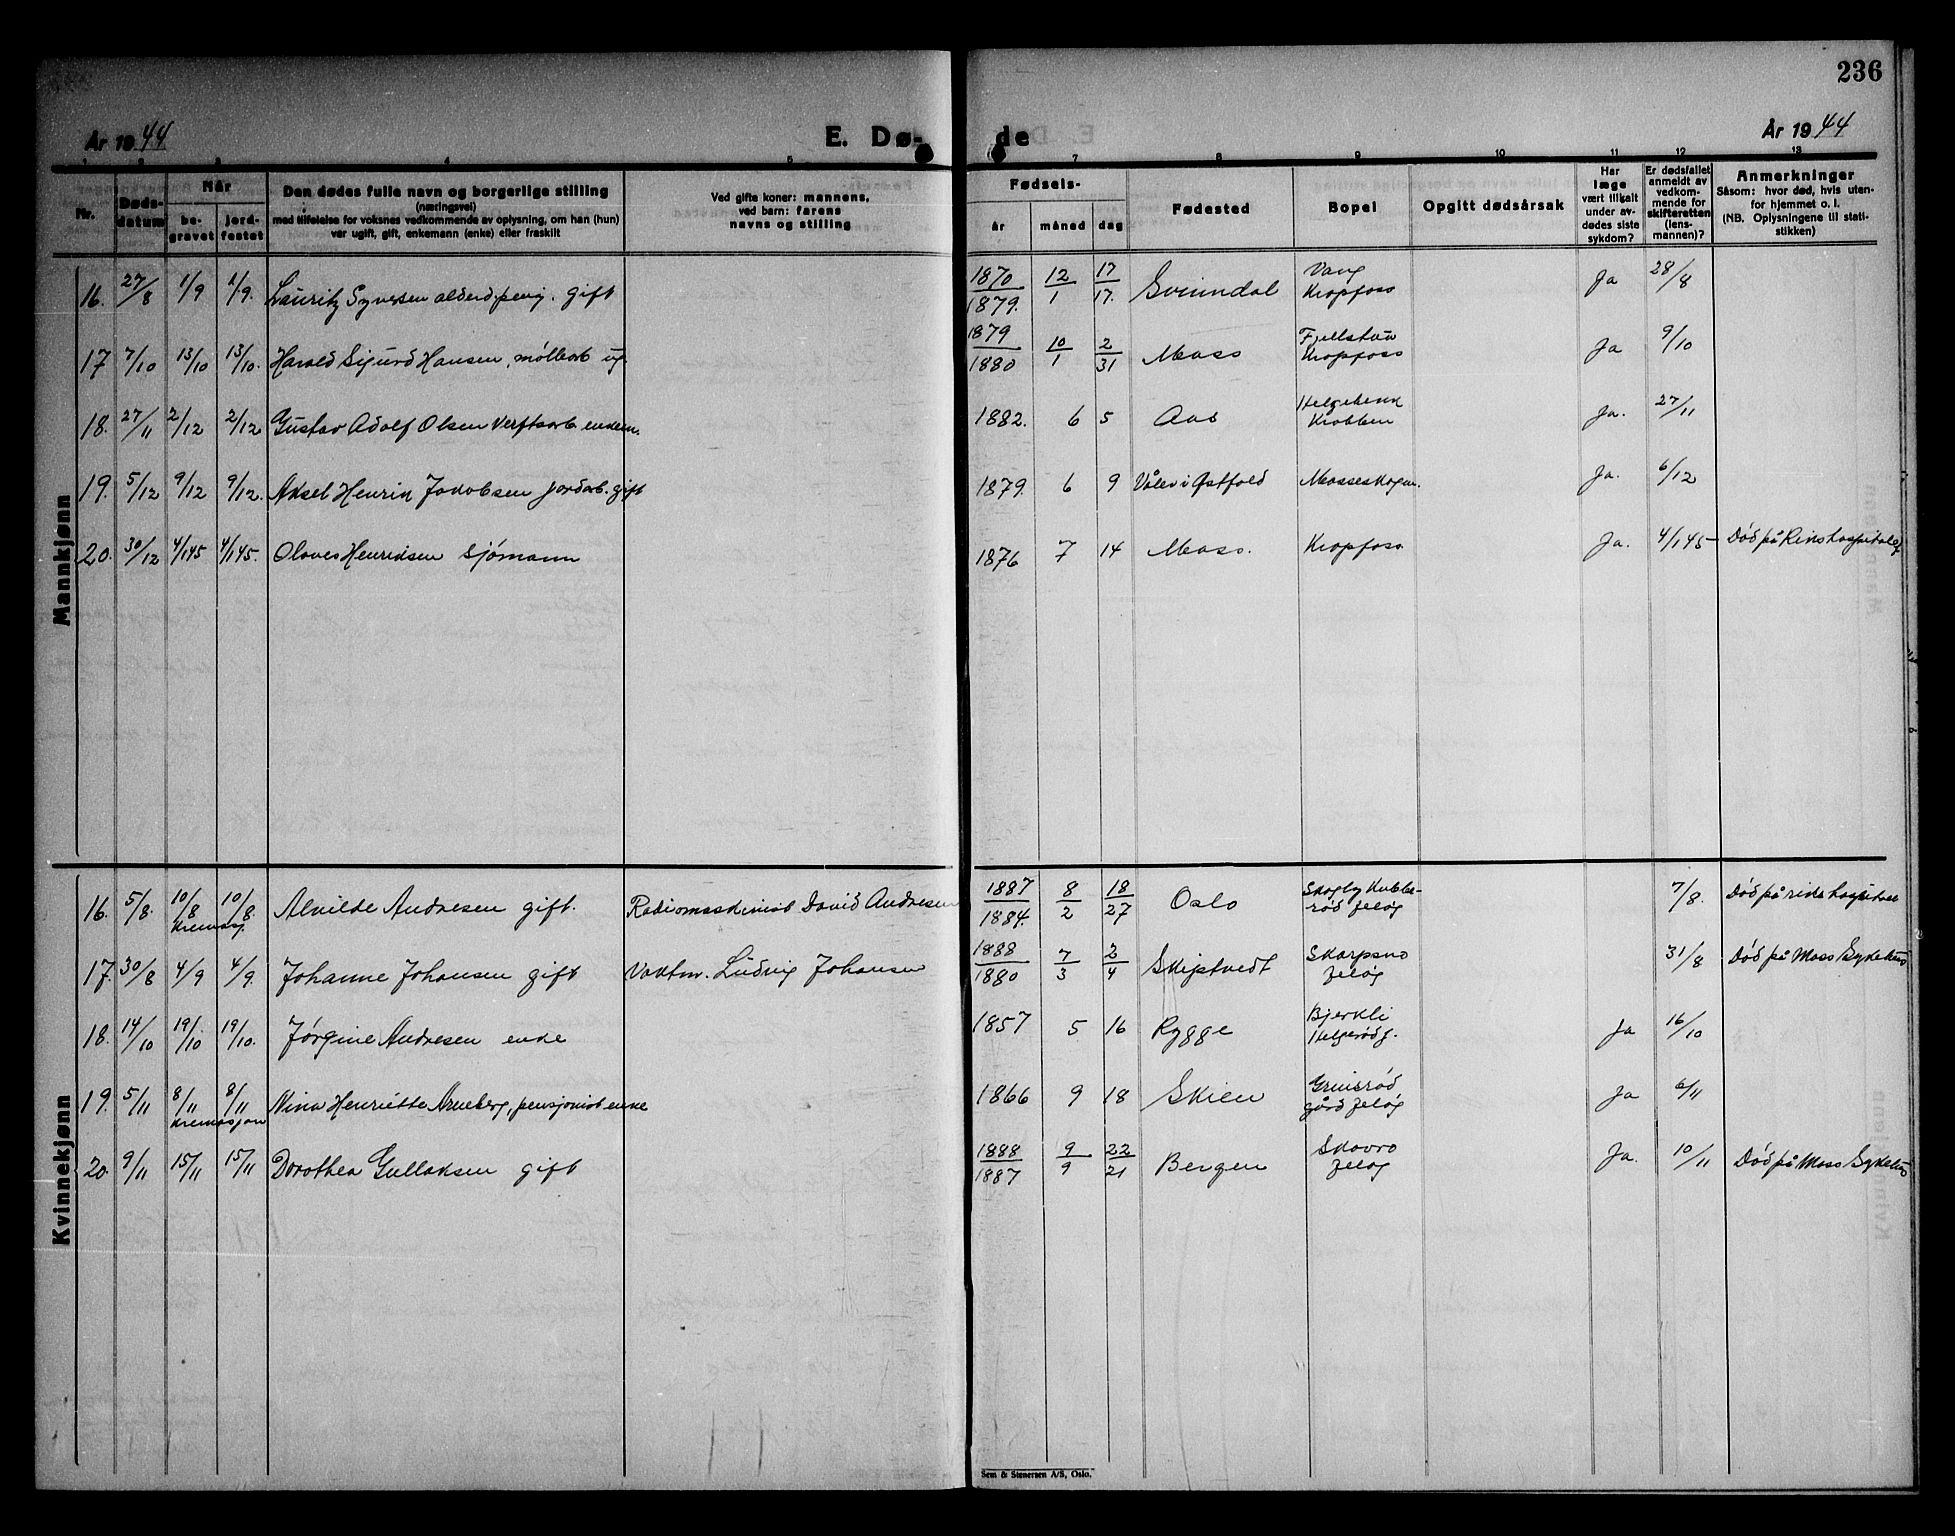 236
År 1944
E. Dø-
de
År 1944
1 2 3 4 5
7 8 9 10 11 12 13
Nr.
Døds-
datum
Når
be-
gravet
jord-
festet
Den dødes fulle navn og borgerlige stilling
(næringsvei)
med tilføielse for voksnes vedkommende av oplysning, om han (hun)
var ugift, gift, enkemann (enke) eller fraskilt
Ved gifte koner: mannens,
ved barn: farens
navns og stilling
Fødsels-
år måned dag
Fødested
Bopel
Opgitt dødsårsak
Har
læge
vært tilkalt
under av-
dødes siste
sykdom?
Er dødsfallet
anmeldt av
vedkom-
mende for
skifteretten
(lens-
mannen)?
Anmerkninger
Såsom: hvor død, hvis uten-
for hjemmet o. l.
(NB. Oplysningene til stati-
stikken)
Mannkjønn
16. 27/8 1/9 1/9. Lauritz Syversen alderdpensj. gift 1870/1879. 12/1 17/17. Svinndal Vang Kropfoss Ja 28/8
17 7/10 13/10 13/10. Harald Sigurd Hansen, møllearb ug. 1879/1880 10/1 2/31 Moss Fjellstua Kropfoss Ja 9/10
18. 27/11 2/12 2/12 Gustav Adolf Olsen Verftsarb. enkem. 1882. 6 5 Aas Krobben Ja. 27/11
19. 5/12 9/12 9/12. Aksel Henrik Jakobsen jordarb. gift 1879. 6 9 Våler i Østfold Mosseskogen. Ja. 6/12
20. 30/12 4/1 45 4/1 45. Olaves Henriksen sjømann 1876 7 14 Moss. Kropfoss. Ja. 4/1 45 Død på Rikshospitalet
Kvinnekjønn
16. 5/8. 10/8 10/8. Alvilde Andresen gift. Radiomaskinist David Andresen 1887/1884. 8/2 18/27 Oslo Skogly Kubbe-
rød Jeløy 7/8. Død på rikshospitalet
kremasj.
17. 30/8 4/9 4/9. Johanne Johansen gift Vaktm. Ludvig Johansen 1888/1880 7/3 2/4 Skiptvedt Skarpsno Jeløy 31/8 Død på Moss Sykehus
18. 14/10 19/10 19/10. Jørgine Andresen enke 1857 5 16 Rygge Bjerkli Helgerød J. Ja 16/10
19. 5/11 8/11 8/11 Nina Henriette Arneberg, pensjonist enke 1866 9 18 Skien Grinsrød gård Jeløy Ja 6/11
kremasjon
20. 9/11 15/11 15/11 Dorothea Gullaksen gift 1888/1887 9/9 22/21 Bergen Skovro Jeløy Ja. 10/11 Død på Moss Sykehus
Sem & Stenersen A/S, Oslo.